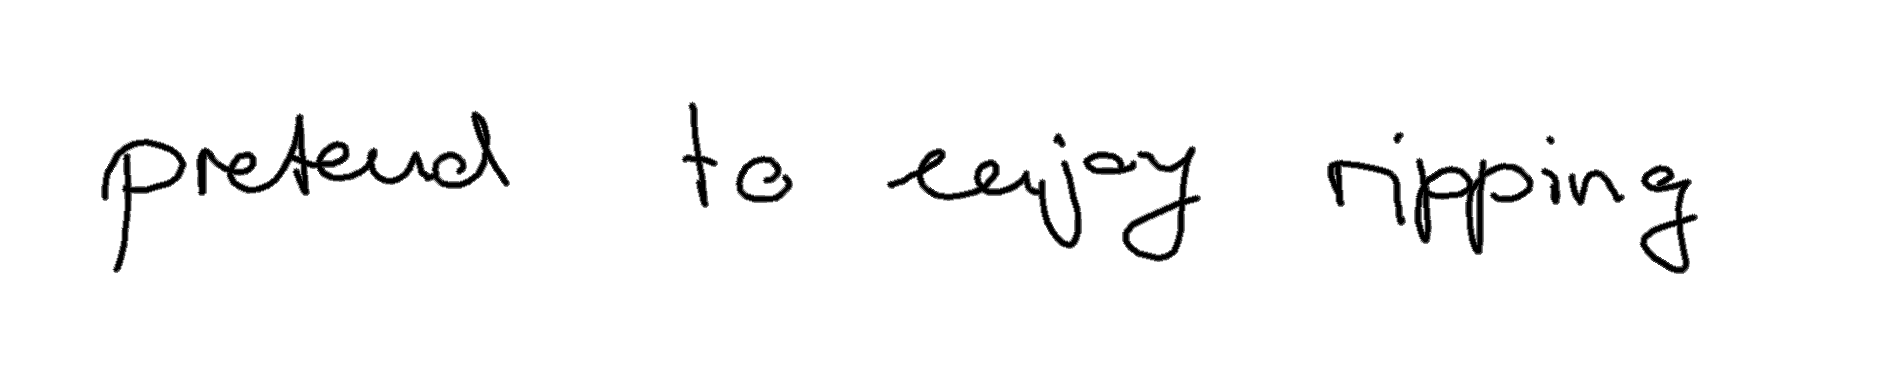 pretend to enjoy ripping